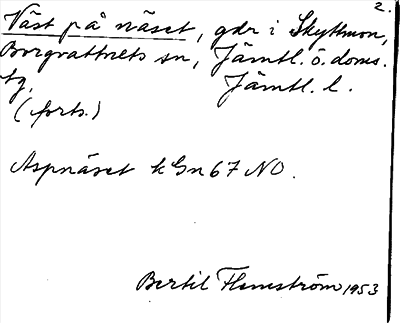 2.
Väst på näset, gdr i Skyttmon,
Borgvattnets sn, Jämtl. ö. doms.
tg. Jämtl. l.
(forts.)
Aspnäset k Gn 67 NO.
Bertil Flemström 1953